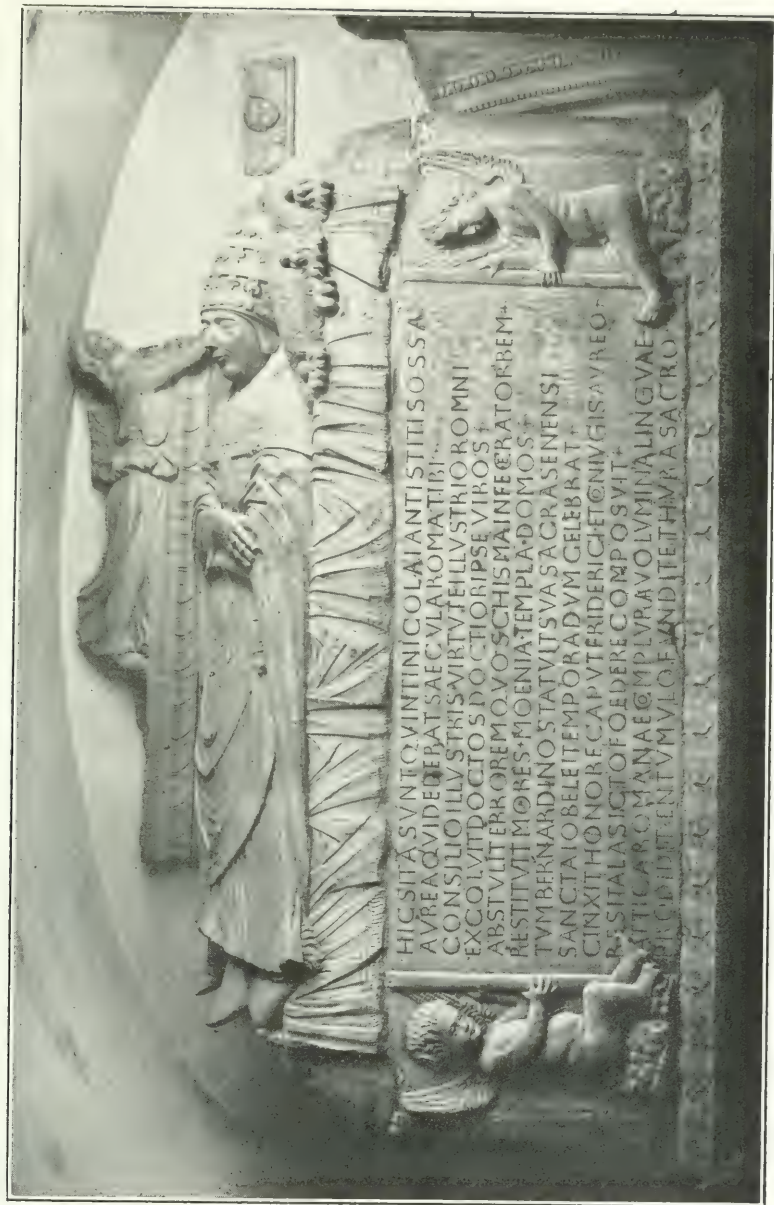 HIC SITA SVNT QVINTI NICOLAI ANTISTITIS OSSA
AVREA QVI DEDERAT SAECVLA ROMA TIBI
CONSILIO ILLVSTRIS VIRTVTE ILLVSTRIOR OMNI
EXCOLVIT DOCTOS DOCTIOR IPSE VIROS
ABSTVLIT ERROREM QVO SCHISMA INFECERAT ORBEM
RESTITVIT MORES · MOENIA TEMPLA · DOMOS
TVM BERNARDINO STATVIT SVA SACRA SENENSI
SANCTA IOBELEI TEMPORA DVM CELEBRAT
CINXIT HONORE CAPVT FRIDERICI ET CONIVGIS AVREO
RES ITALAS ICTO FOEDERE COMPOSVIT
ATTICA ROMANAE COMPLVRA VOLVMINA LINGVAE
PRODIDIT EN TVMVLO FVNDITE THVRA SACRO